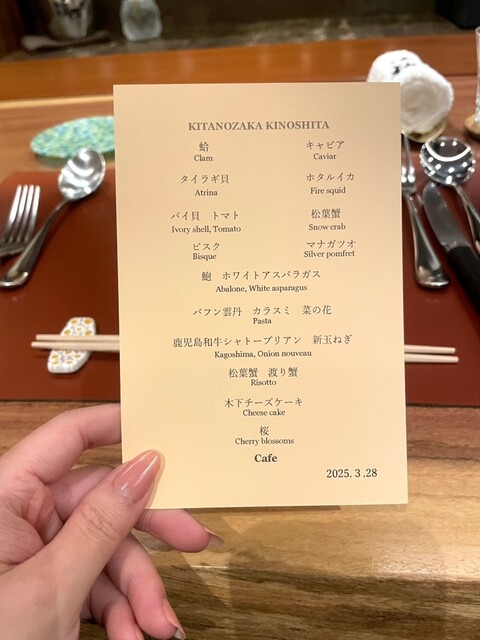 KITANOZAKA KINOSHITA
蛤 キャビア
Clam Caviar
タイラギ貝 ホタルイカ
Atrina Fire squid
バイ貝 トマト 松葉蟹
Ivory shell, Tomato Snow crab
ビスク マナガツオ
Bisque Silver pomfret
鮑 ホワイトアスパラガス
Abalone, White asparagus
バフン雲丹 カラスミ 菜の花
Pasta
鹿児島和牛シャトーブリアン 新玉ねぎ
Kagoshima, Onion nouveau
松葉蟹 渡り蟹
Risotto
木下チーズケーキ
Cheese cake
桜
Cherry blossoms
Cafe
2025. 3 .28